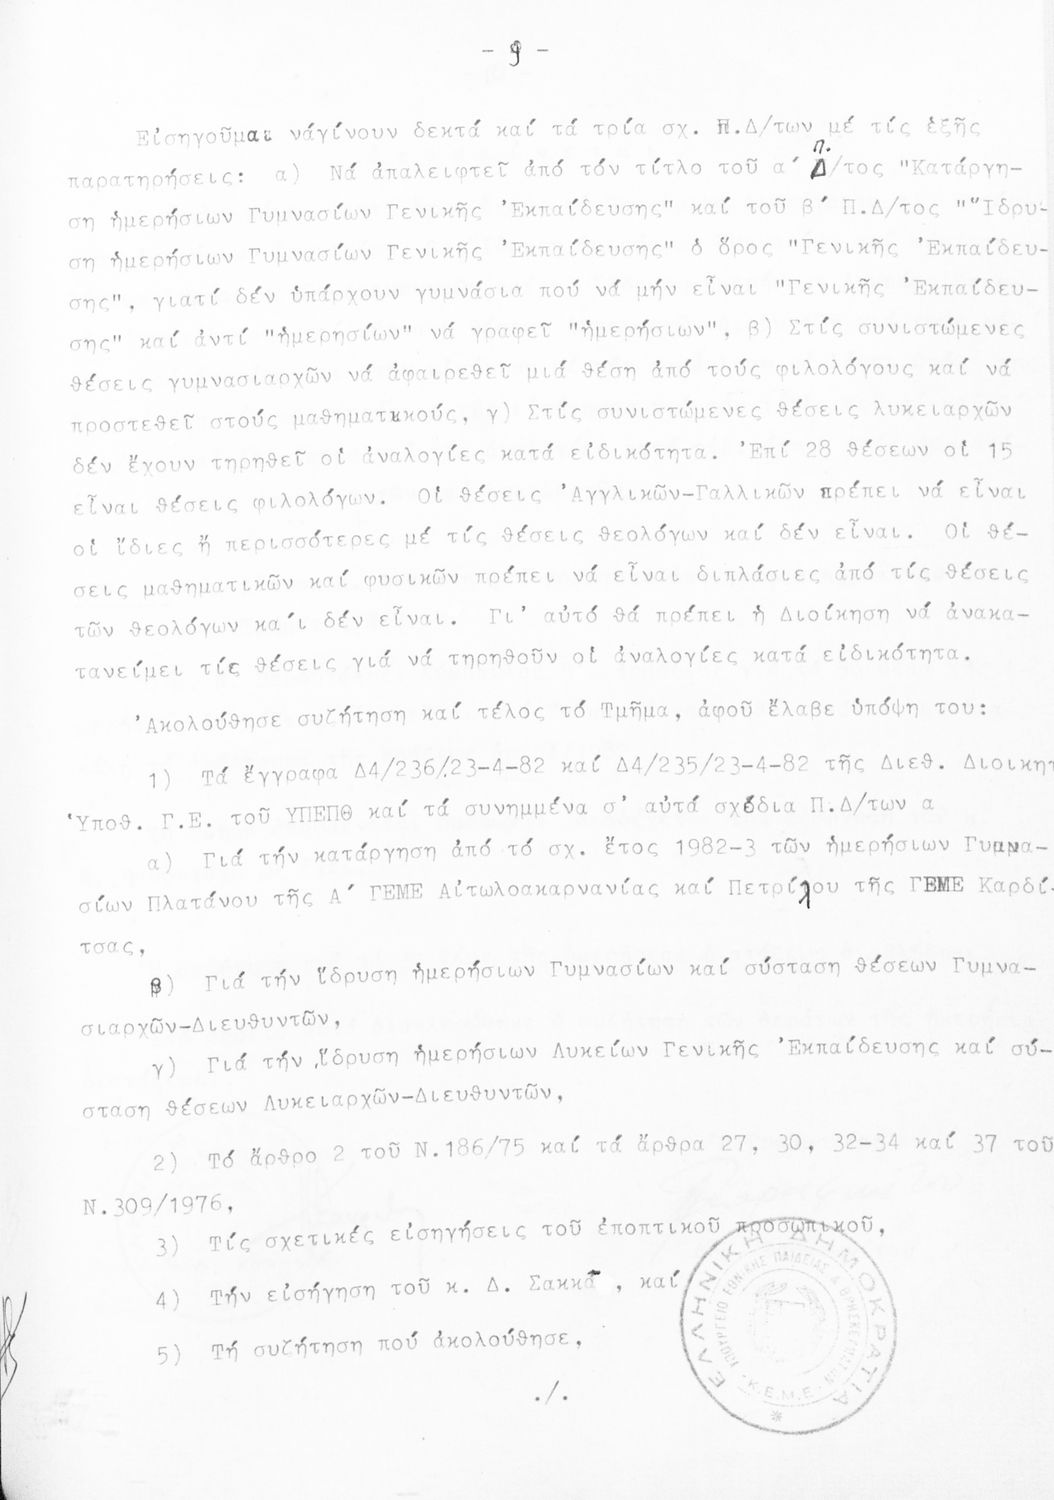 - 9 -
Εἰσηγοῦμαι νάγίνουν δεκτά καί τά τρία σχ. Π.Δ/των μέ τίς ἑξῆς
παρατηρήσεις: α) Νά ἀπαλειφτεῖ ἀπό τόν τίτλο τοῦ α΄ Π.Δ/τος "Κατάργη-
ση ἡμερήσιων Γυμνασίων Γενικῆς Ἐκπαίδευσης" καί τοῦ β΄ Π.Δ/τος "Ἵδρυ-
ση ἡμερήσιων Γυμνασίων Γενικῆς Ἐκπαίδευσης" ὁ ὅρος "Γενικῆς Ἐκπαίδευ-
σης", γιατί δέν ὑπάρχουν γυμνάσια πού νά μήν εἶναι "Γενικῆς Ἐκπαίδευ-
σης" καί ἀντί "ἡμερησίων" νά γραφεῖ "ἡμερήσιων", β) Στίς συνιστώμενες
θέσεις γυμνασιαρχῶν νά ἀφαιρεθεῖ μιά θέση ἀπό τούς φιλολόγους καί νά
προστεθεῖ στούς μαθηματικούς, γ) Στίς συνιστώμενες θέσεις λυκειαρχῶν
δέν ἔχουν τηρηθεῖ οἱ ἀναλογίες κατά εἰδικότητα. Ἐπί 28 θέσεων οἱ 15
εἶναι θέσεις φιλολόγων. Οἱ θέσεις Ἀγγλικῶν-Γαλλικῶν πρέπει νά εἶναι
οἱ ἴδιες ἤ περισσότερες μέ τίς θέσεις θεολόγων καί δέν εἶναι. Οἱ θέ-
σεις μαθηματικῶν καί φυσικῶν πρέπει νά εἶναι διπλάσιες ἀπό τίς θέσεις
τῶν θεολόγων κα΄ι δέν εἶναι. Γι' αὐτό θά πρέπει ἡ Διοίκηση νά ἀνακα-
τανείμει τίς θέσεις γιά νά τηρηθοῦν οἱ ἀναλογίες κατά εἰδικότητα.
Ἀκολούθησε συζήτηση καί τέλος τό Τμῆμα, ἀφοῦ ἔλαβε ὑπόψη του:
1) Τά ἔγγραφα Δ4/236/23-4-82 καί Δ4/235/23-4-82 τῆς Διεθ. Διοικητ
Ὑποθ. Γ.Ε. τοῦ ΥΠΕΠΘ καί τά συνημμένα σ' αὐτά σχέδια Π.Δ/των α
α) Γιά τήν κατάργηση ἀπό τό σχ. ἔτος 1982-3 τῶν ἡμερήσιων Γυμνα-
σίων Πλατάνου τῆς Α΄ ΓΕΜΕ Αἰτωλοακαρνανίας καί Πετρίλου τῆς ΓΕΜΕ Καρδί-
τσας,
β) Γιά τήν ἵδρυση ἡμερήσιων Γυμνασίων καί σύσταση θέσεων Γυμνα-
σιαρχῶν-Διευθυντῶν,
γ) Γιά τήν ἵδρυση ἡμερήσιων Λυκείων Γενικῆς Ἐκπαίδευσης καί σύ-
σταση θέσεων Λυκειαρχῶν-Διευθυντῶν,
2) Τό ἄρθρο 2 τοῦ Ν.186/75 καί τά ἄρθρα 27, 30, 32-34 καί 37 τοῦ
Ν.309/1976,
3) Τίς σχετικές εἰσηγήσεις τοῦ ἐποπτικοῦ προσωπικοῦ,
4) Τήν εἰσήγηση τοῦ κ. Δ. Σακκᾶ , καί
5) Τή συζήτηση πού ἀκολούθησε,
./.
ΕΛΛΗΝΙΚΗ ΔΗΜΟΚΡΑΤΙΑ
ΥΠΟΥΡΓΕΙΟ ΕΘΝΙΚΗΣ ΠΑΙΔΕΙΑΣ & ΘΡΗΣΚΕΥΜΑΤΩΝ
Κ.Ε.Μ.Ε.